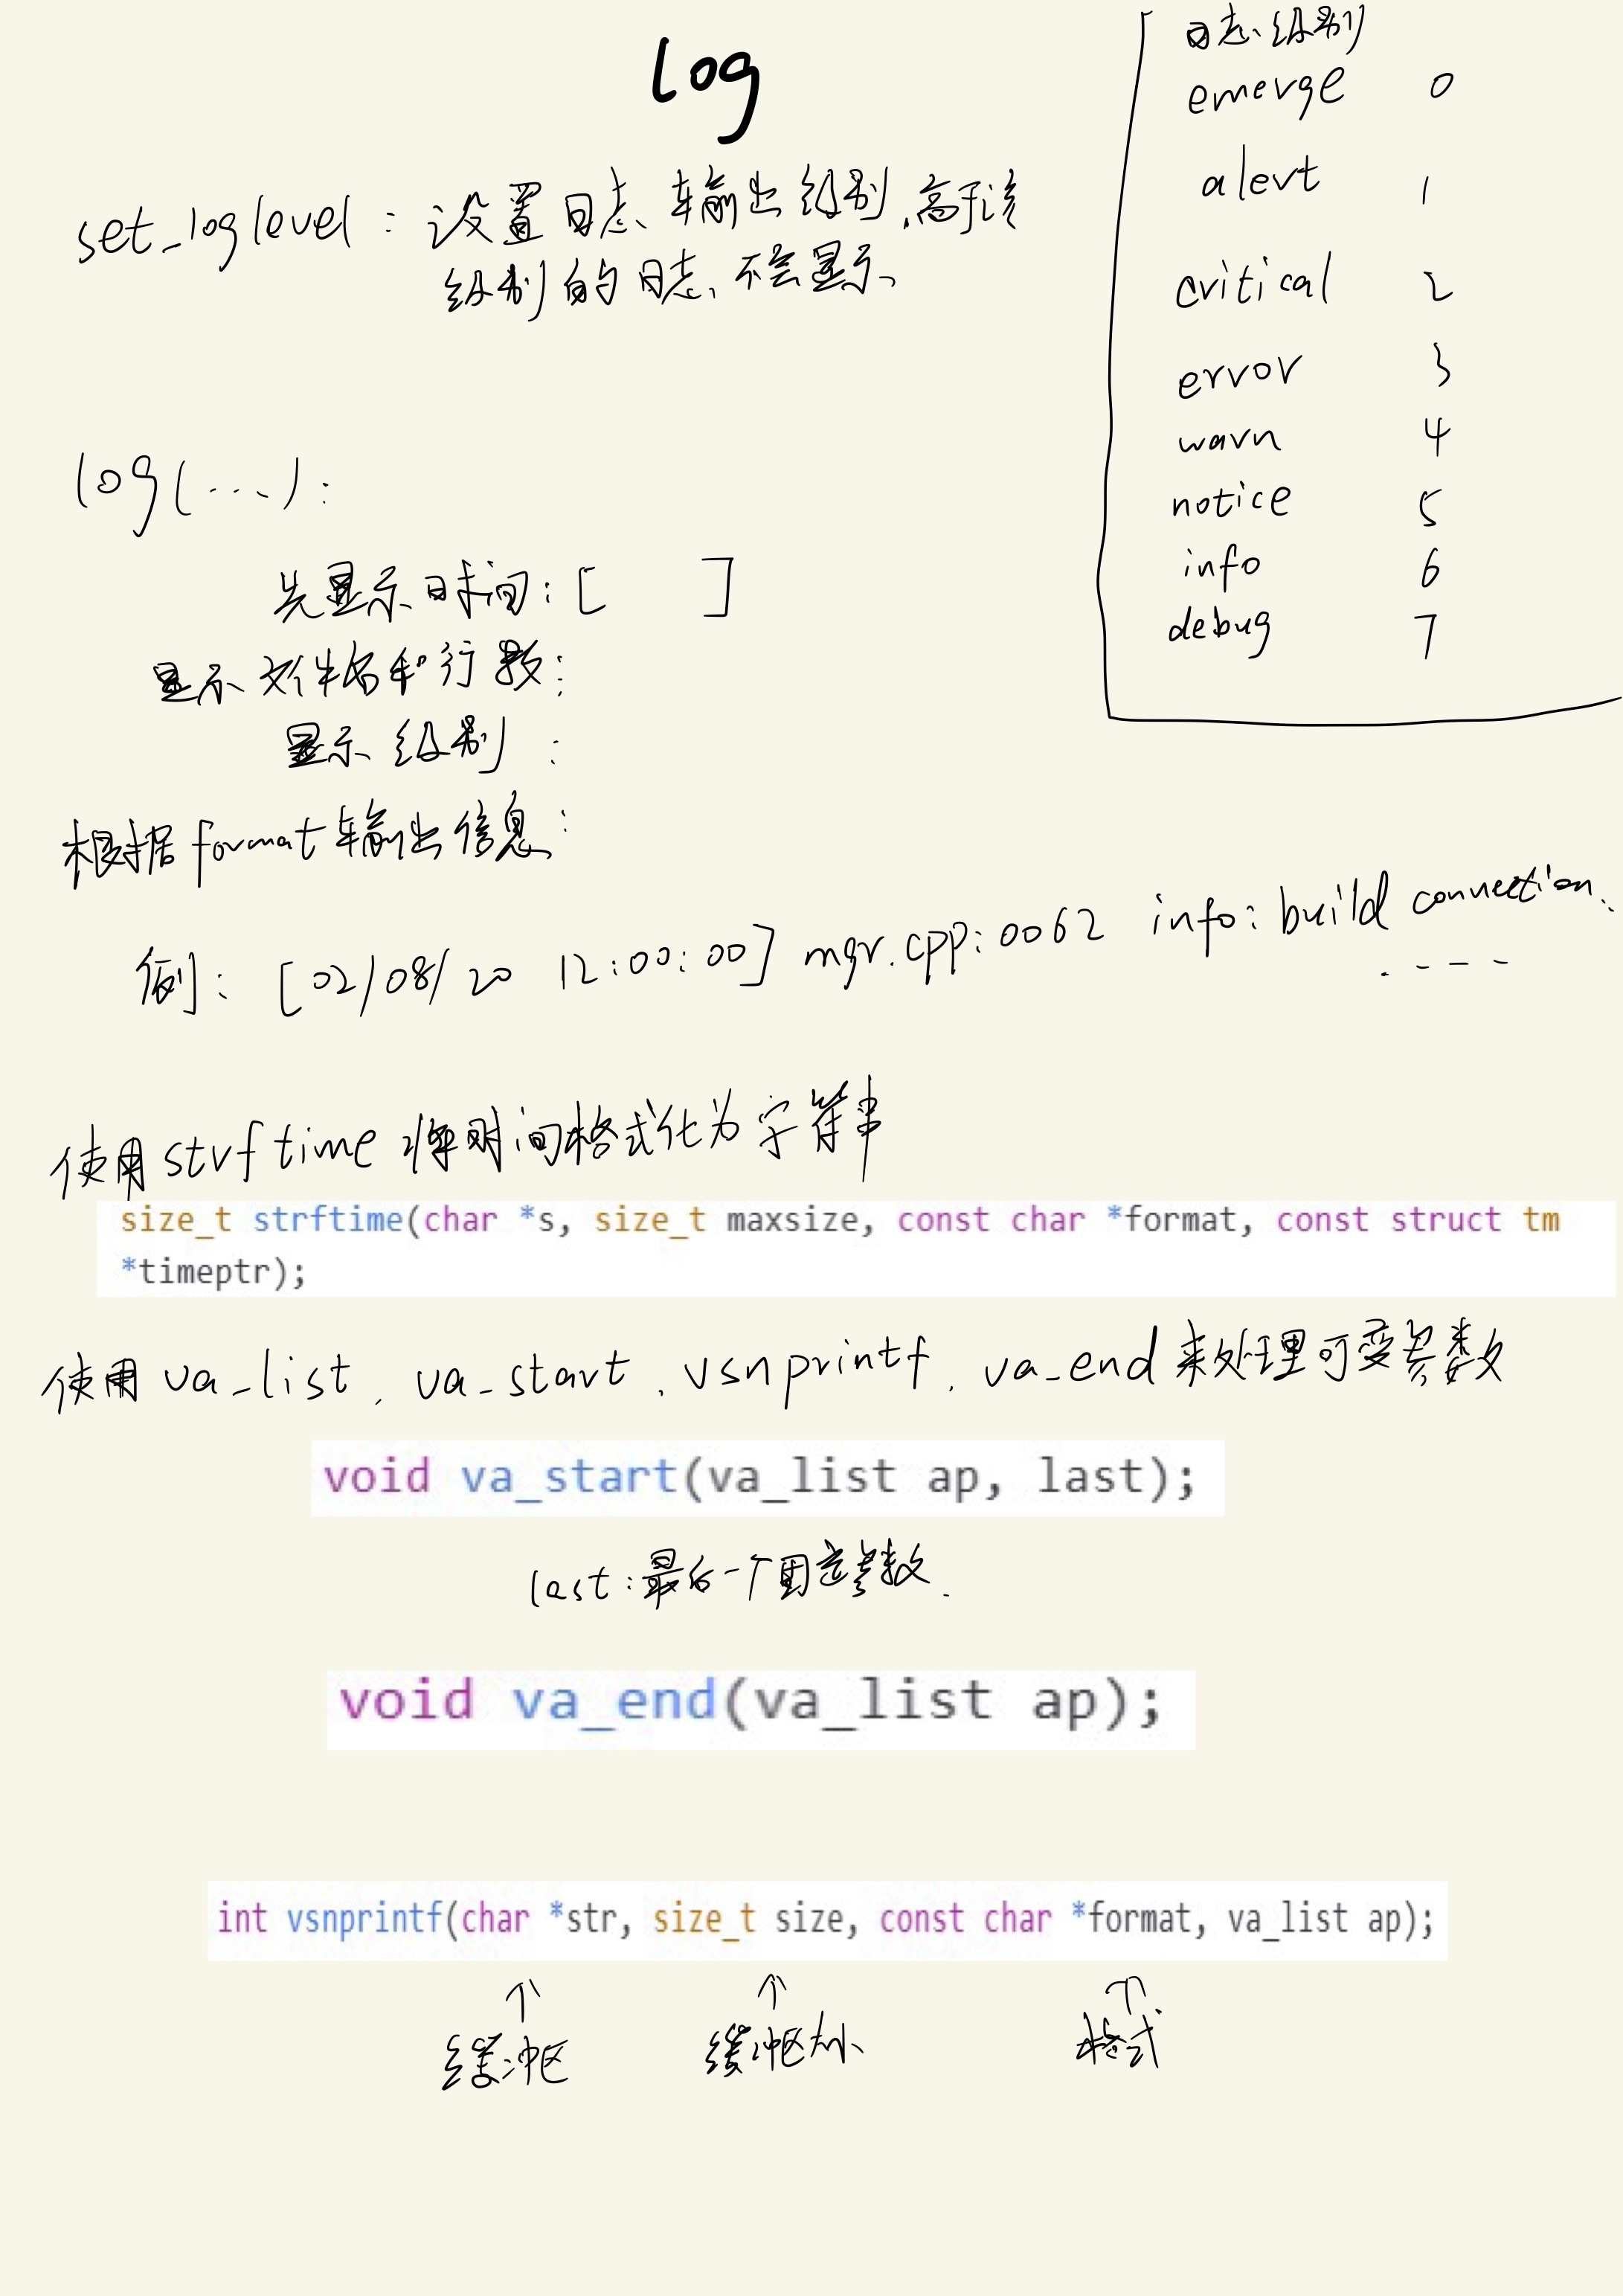 log
日志级别
emerge 0
alert 1
critical 2
error 3
warn 4
notice 5
info 6
debug 7
set_loglevel：设置日志输出级别,高于该
级别的日志,不会显示
log(...):
先显示时间:[ ]
显示文件名和行数:
显示级别:
根据format输出信息:
例: [02/08/20 12:00:00] mgr.cpp:0062 info: build connection..
.----
使用strftime将时间格式化为字符串
size_t strftime(char *s, size_t maxsize, const char *format, const struct tm
*timeptr);
使用va_list、va_start、vsnprintf、va_end来处理可变参数
void va_start(va_list ap, last);
last:最后一个固定参数.
void va_end(va_list ap);
int vsnprintf(char *str, size_t size, const char *format, va_list ap);
↑ ↑ ↑
缓冲区 缓冲区大小 格式